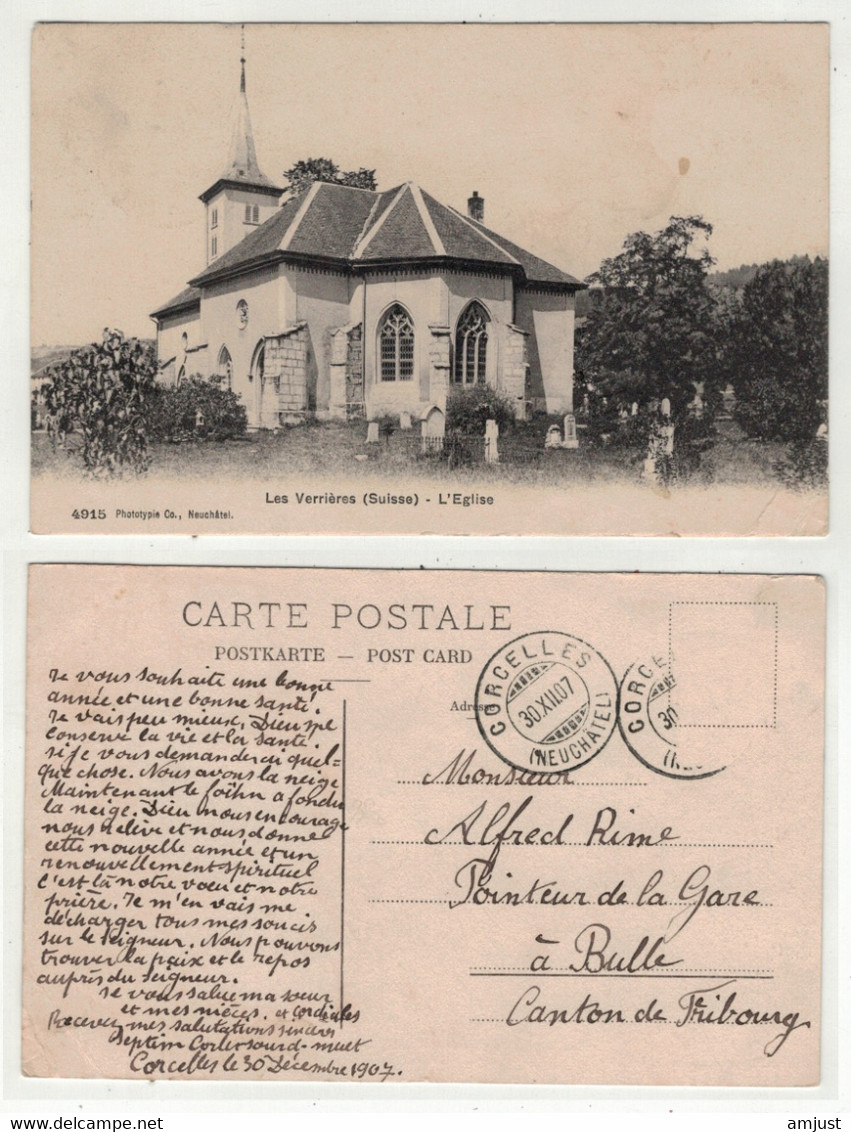 Les Verrières (Suisse) - L'Eglise
4915 Phototypie Co., Neuchâtel.
CARTE POSTALE
POSTKARTE — POST CARD
Adresse
CORCELLES
30.XII.07
(NEUCHÂTEL)
CORCE
30.
(NEU
Je vous souhaite une bonne
année et une bonne santé.
Je vais peu mieux. Dieu me
conserve la vie et la santé.
si je vous demanderai quel-
que chose. Nous avons la neige
Maintenant le föihn a fondu
la neige. Dieu nous encourage
nous relève et nous donne
cette nouvelle année et un
renouvellement spirituel
c'est là notre vœu et notre
prière. Je m'en vais me
décharger tous mes soucis
sur le Seigneur. Nous pouvons
trouver la paix et le repos
auprès du Seigneur.
Je vous salue ma sœur
et mes nièces. et cordiales
Recevez mes salutations sincères
Septim sourd-muet
Corcelles le 30 Décembre 1907.
Monsieur
Alfred Rime
Pointeur de la Gare
à Bulle
Canton de Fribourg
www.delcampe.net
amjust